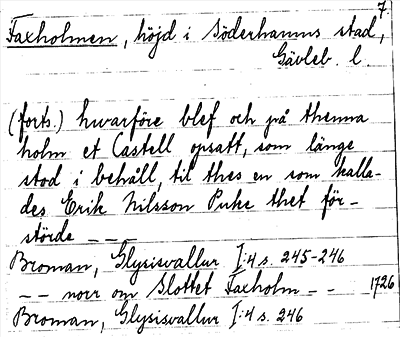 7.
Faxholmen, höjd i Söderhamns stad,
Gävleb. l.
(forts.) hwarföre blef och på thenna
holm et Castell opsatt, som länge
stod i behåll, til thes en som kalla-
des Erik Nilsson Puke thet för-
störde _ _
Broman, Glysisvallur I:4 s. 245-246
_ _ norr om Slottet Faxholm _ _ 1726
Broman, Glysisvallur I:4 s. 246